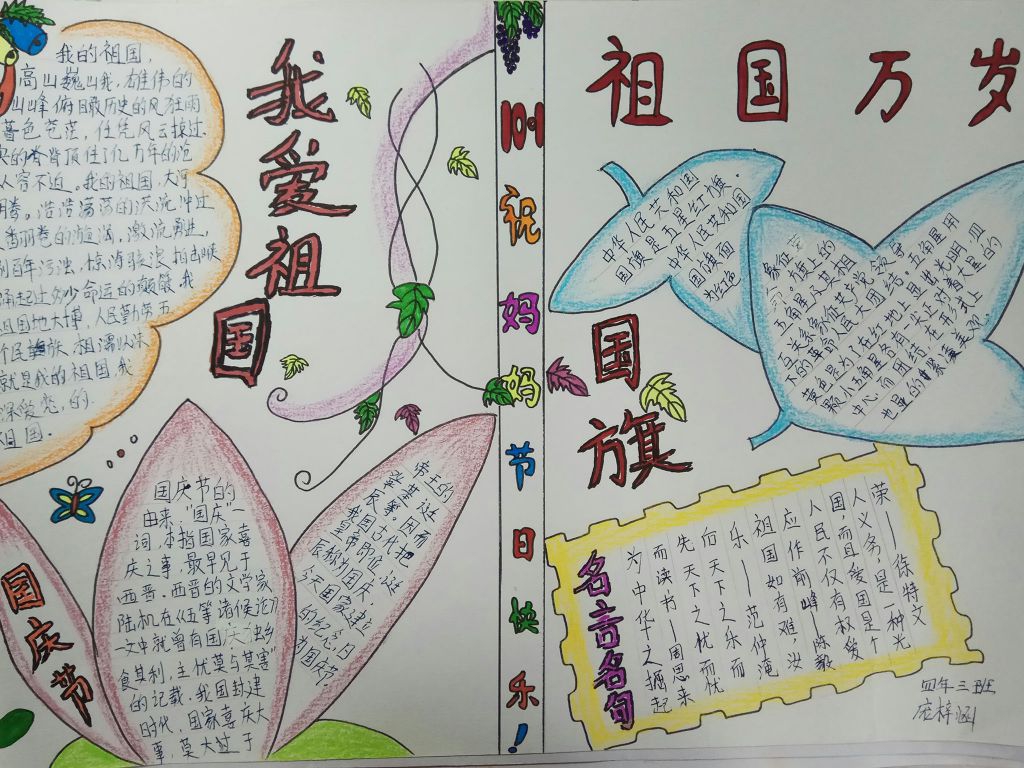 我的祖国,
高山巍峨,雄伟的
山峰俯瞰历史的风狂雨
暮色苍茫,任凭风云掠过.
的脊背顶住了亿万年的沧
从容不迫。我的祖国,大河
浩浩荡荡的洪流冲过
卷的漩涡,激流勇进,
百年污浊,惊涛骇浪拍击峡
涌起过
命运的颠簸,我
祖国地大博,人民勤劳
个民族
就是我的祖国我
深爱
的.
祖国.
我爱祖国
国庆节
国庆节的
由来:"国庆"一
词,本指国家喜
庆之事,最早见于
西晋、西晋的文学家
陆机在《五等诸侯论》
一文中就曾有国庆
食其利,主忧莫与其害"
的记载,我国封建
时代,国家喜庆大
事,莫大过于
帝王的
登基、诞
辰等。因而
我国古代把
皇帝即位、诞
辰称为国庆
今天国家建立
的纪念日
为国庆节。
祝妈妈节日快乐!
祖国万岁
国旗
中华人民共和国
国旗是五星红旗.
中华人民共和国
国旗面
为红色
象征
旗上的
五角星及其相
互关系象征共产党领导
下的革命人民大团结。五角星用
黄色是为了在红地上显出光明,四
颗小五角星各有一尖正对着大星的
中心
名言名句
为中华之崛起
而读书—周恩来
先天下之忧而忧
后天下之乐而
乐—范仲淹
祖国如有难,汝
应作前峰—陈毅
人民不仅有权爱
国,而且爱国是个
人义务,是一种光
荣—徐特文
四年三班
庞梓涵